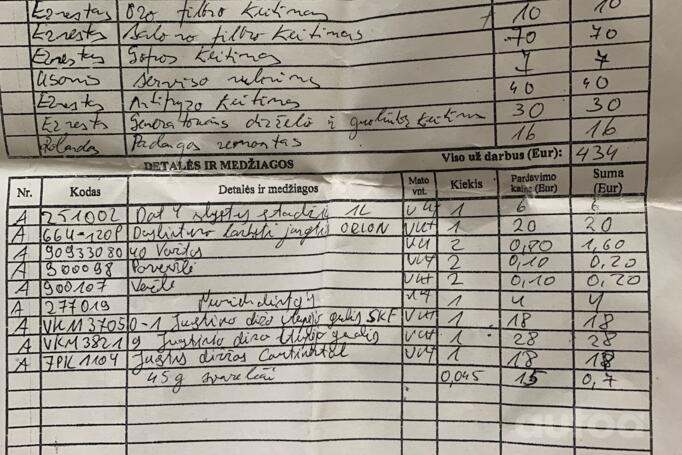 Ernestas Oro filtro keitimas 10 10
Ernestas Salono filtro keitimas 70 70
Ernestas keitimas 7 7
Usonis Serviso 40 40
Ernestas Antifryzo keitimas 30 30
Ernestas Generatoriaus dirželio ir keitimas
Rolandas Padangos remontas 16 16
DETALĖS IR MEDŽIAGOS Viso už darbus (Eur): 434
Nr. Kodas Detalės ir medžiagos Mato vnt. Kiekis Pardavimo kaina (Eur) Suma (Eur)
A 251002 Dot 4 stabdžių 1L vnt 1 6 6
A 664-120P ORLON vnt 1 20 20
A 90933080 vnt 2 0,80 1,60
A 900098 Poveržlė vnt 2 0,10 0,20
A 900107 Veržlė vnt 2 0,10 0,20
A 277019 vnt 1 4 4
A VKM 37050-1 Įtempimo diržo SKF vnt 1 18 18
A VKM 38219 diržo vnt 1 28 28
A 7PK 1104 diržas Continental vnt 1 18 18
45g svareliai 0,045 15 0,7
autoa